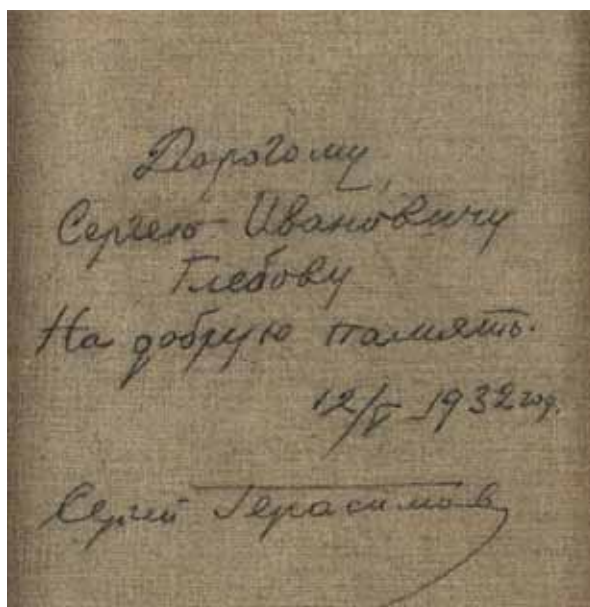 Дорогому
Сергею Ивановичу
Глебову
На добрую память.
12/V 1932 год.
Сергей Герасимов